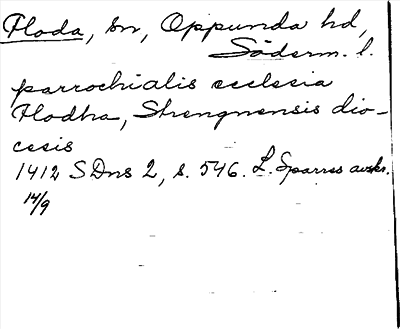 Floda, sn, Oppunda hd,
Söderm. l.
parrochialis ecclesia
Flodha, Strengnensis dio-
cesis
1412 SDns 2, s. 546. L. Sparres avskr.
14/9